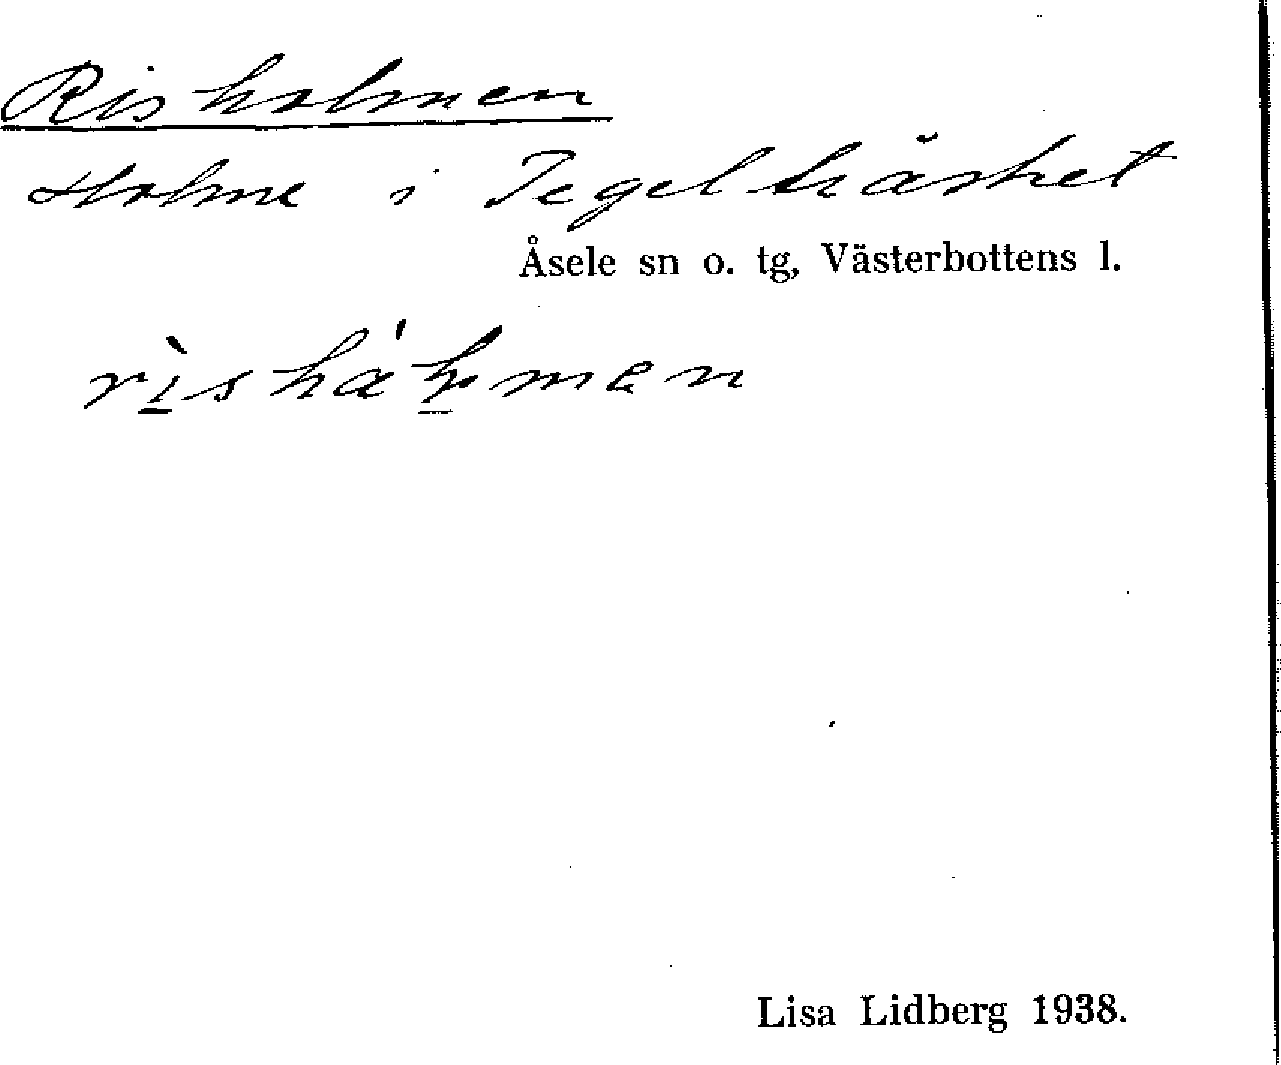 Risholmen
Holme i Tegelträsket
Åsele sn o. tg, Västerbottens l.
Lisa Lidberg 1938.